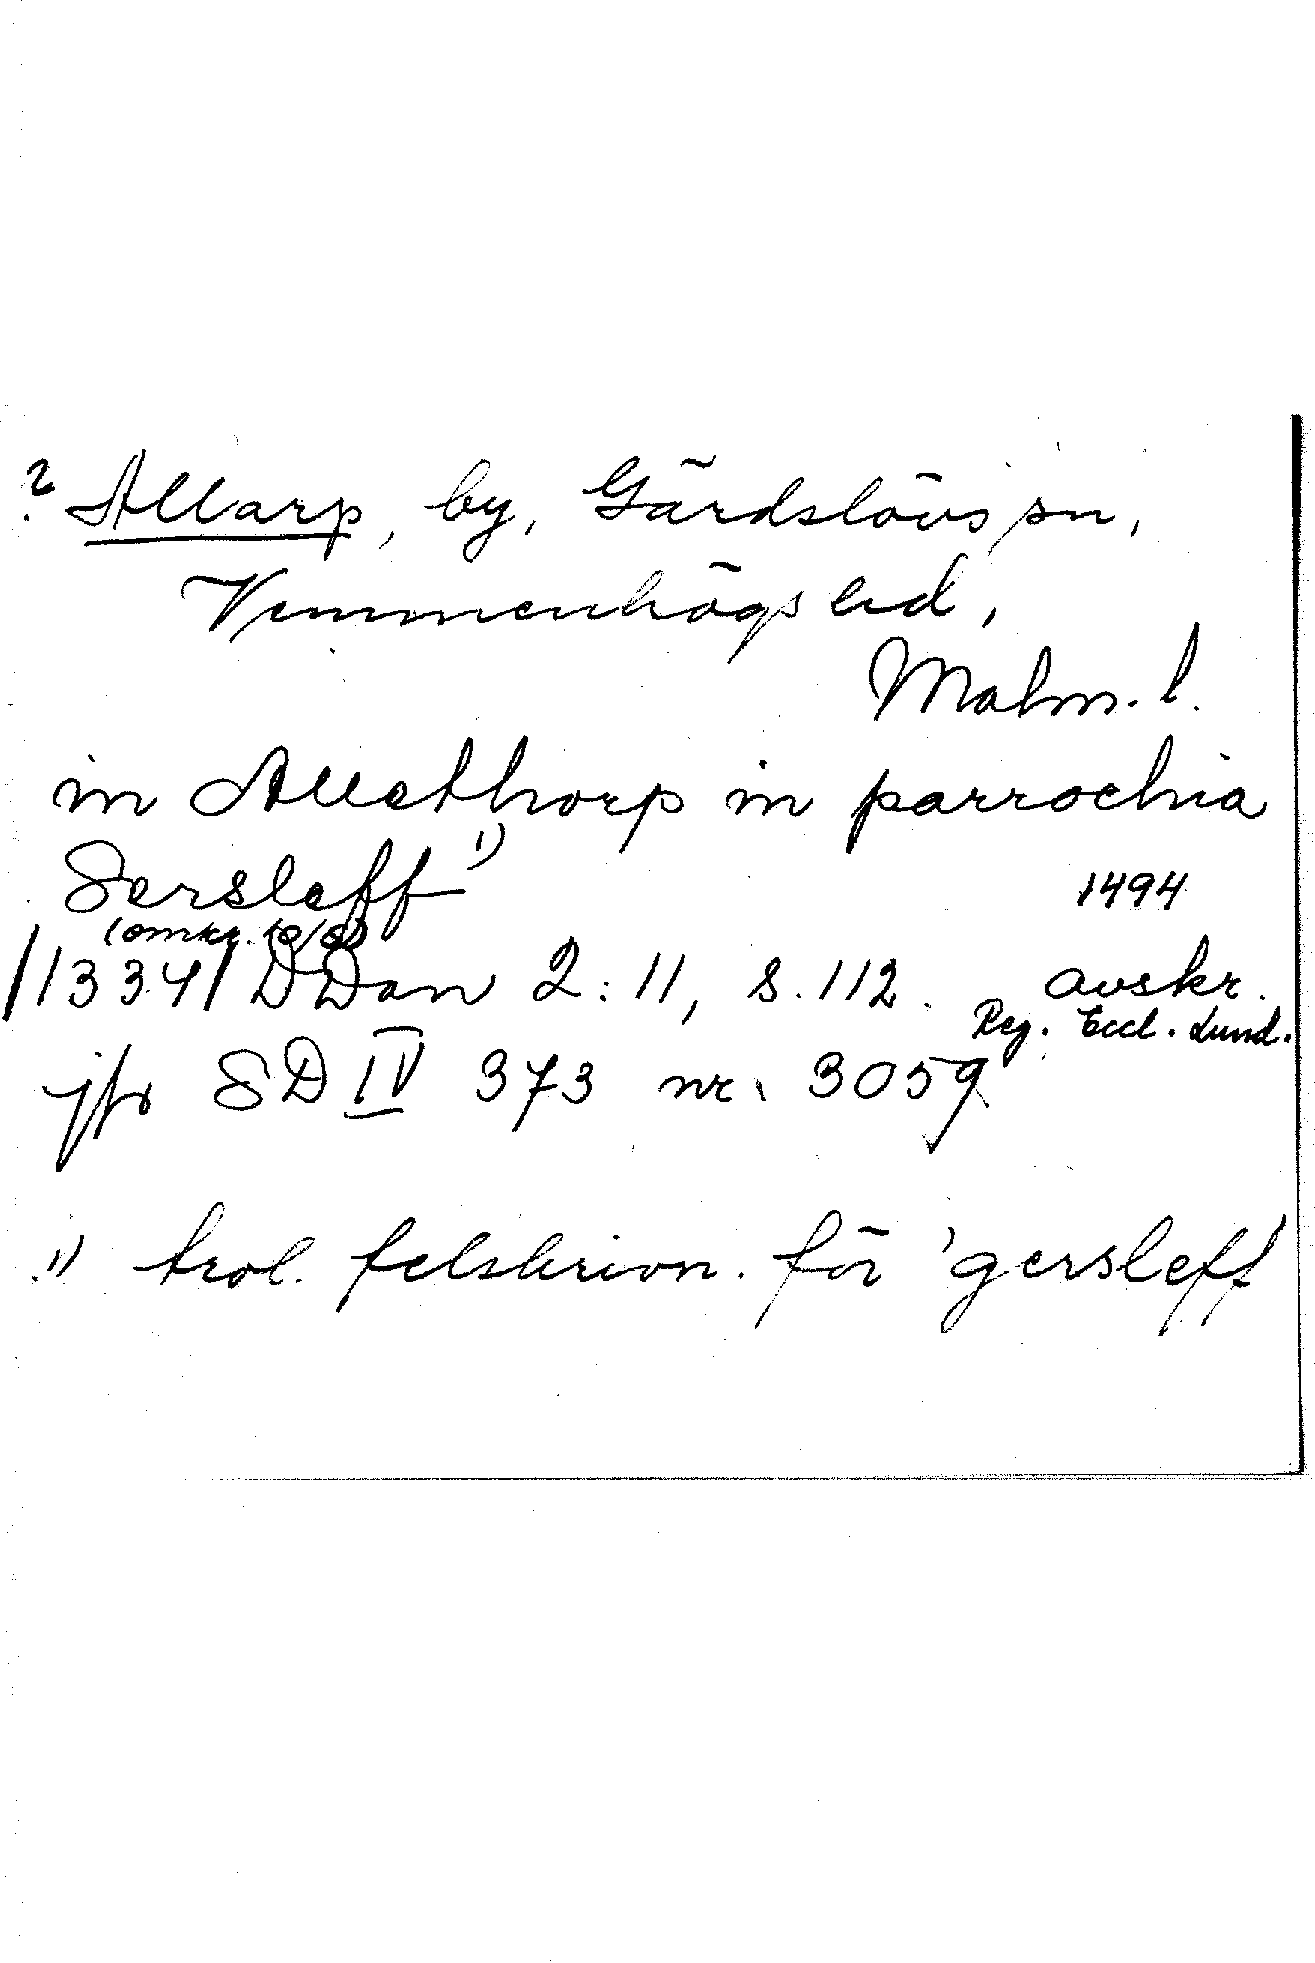 ? Allarp, by, Gärdslövs sn,
Vemmenhögs hd,
Malm. l.
in Allethorp in parrochia
Sersleff ¹⁾
1494
(omkr. 10/8)
/1334/ DDan 2:11, s. 112. avskr.
Reg. Eccl. Lund.
jfr SD IV 373 nr. 3059
¹⁾ trol. felskrivn. för 'gersleff'